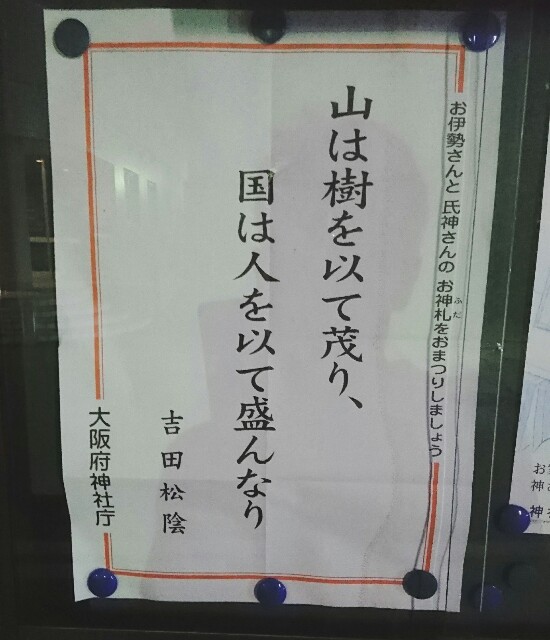 お伊勢さんと氏神さんの お神札をおまつりしましょう
ふだ
山は樹を以て茂り、
国は人を以て盛んなり
吉田松陰
大阪府神社庁